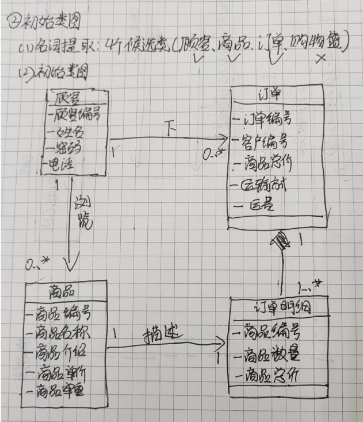 ②初始类图
(1)名词提取：4个候选类(顾客、商品、订单、购物篮)
(2)初始类图
顾客
-顾客编号
-姓名
-密码
-电话
1
下
0..*
订单
-订单编号
-客户编号
-商品总价
-运输方式
-运费
1
浏览
0..*
1
1..*
商品
-商品编号
-商品名称
-商品介绍
-商品单价
-商品单重
1
描述
1
订单明细
-商品编号
-商品数量
-商品总价